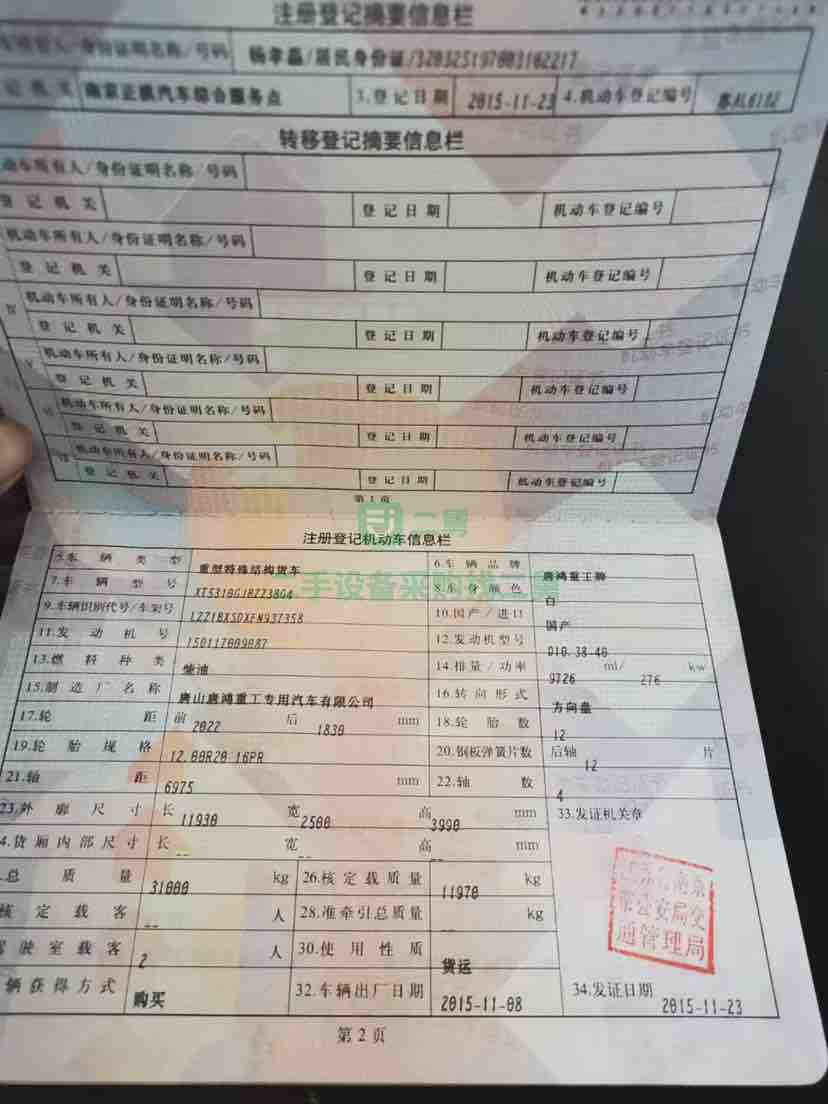 注册登记摘要信息栏
车所有人/身份证明名称/号码 杨孝磊/居民身份证/320325197003162217
记机关 南京正祺汽车综合服务点 3.登记日期 2015-11-23 4.机动车登记编号
转移登记摘要信息栏
动车所有人/身份证明名称/号码
登记机关 登记日期 机动车登记编号
机动车所有人/身份证明名称/号码
登记机关 登记日期 机动车登记编号
机动车所有人/身份证明名称/号码
登记机关 登记日期 机动车登记编号
机动车所有人/身份证明名称/号码
登记机关 登记日期 机动车登记编号
机动车所有人/身份证明名称/号码
登记机关 登记日期 机动车登记编号
机动车所有人/身份证明名称/号码
登记机关 登记日期 机动车登记编号
第1页
二粤
二手设备采
注册登记机动车信息栏
5.车辆类型 重型特殊结构货车 6.车辆品牌 唐鸿重工牌
7.车辆型号 XT5310GJBZ238G4 8.车身颜色 白
9.车辆识别代号/车架号 LZZ1BXSDXFN937358 10.国产/进口 国产
11.发动机号 150117009087 12.发动机型号 D10.38-40
13.燃料种类 柴油 14.排量/功率 9726 ml/ 276 kw
15.制造厂名称 唐山唐鸿重工专用汽车有限公司 16.转向形式 方向盘
17.轮距 前 2022 后 1830 mm 18.轮胎数 12
19.轮胎规格 12.00R20 16PR 20.钢板弹簧片数 后轴 12 片
21.轴距 6975 mm 22.轴数 4
23.外廓尺寸 长 11930 宽 2500 高 3990 mm 33.发证机关章
4.货厢内部尺寸 长 -- 宽 -- 高 -- mm
总质量 31000 kg 26.核定载质量 11970 kg
核定载客 -- 人 28.准牵引总质量 -- kg
驾驶室载客 2 人 30.使用性质 货运
辆获得方式 购买 32.车辆出厂日期 2015-11-08 34.发证日期 2015-11-23
江苏省南京
市公安局交
通管理局
第2页